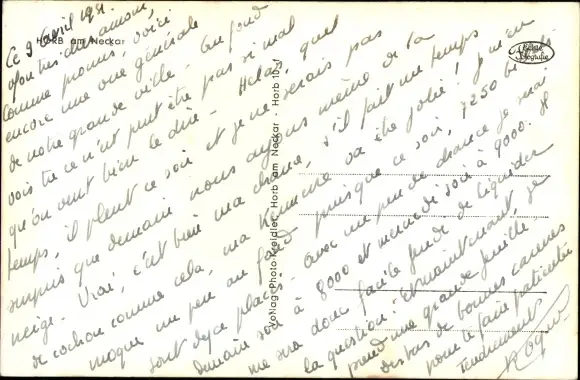 HORB am Neckar
Ce 9 avril 191.
Mon tres cher amour,
Comme promis, voici
encore une vue générale
de notre grande ville. Au fond
vois tu ce n'est peut être pas si mal
qu'on veut bien le dire - Hélas, quel
temps, il pleut ce soir et je ne serais pas
surpris que demain nous ayons même de la
neige. Vrai, c'est bien ma chance, s'il fait un temps
de cochon comme cela, ma permission va être jolie! Je m'en
moque un peu au fond puisque ce soir, 7250
sont déjà placés. avec un peu de chance je serai
demain soir à 8000 et mercredi soir à 9000. Il
me sera donc facile jeudi de liquider
la question! Et maintenant, je
prend une grande feuille
de bonnes caresses
pour te faire patienter
Tendrement
Roger
VoNag-Photo-Kreidler, Horb am Neckar - Horb 10 sf
Echte Fotografie